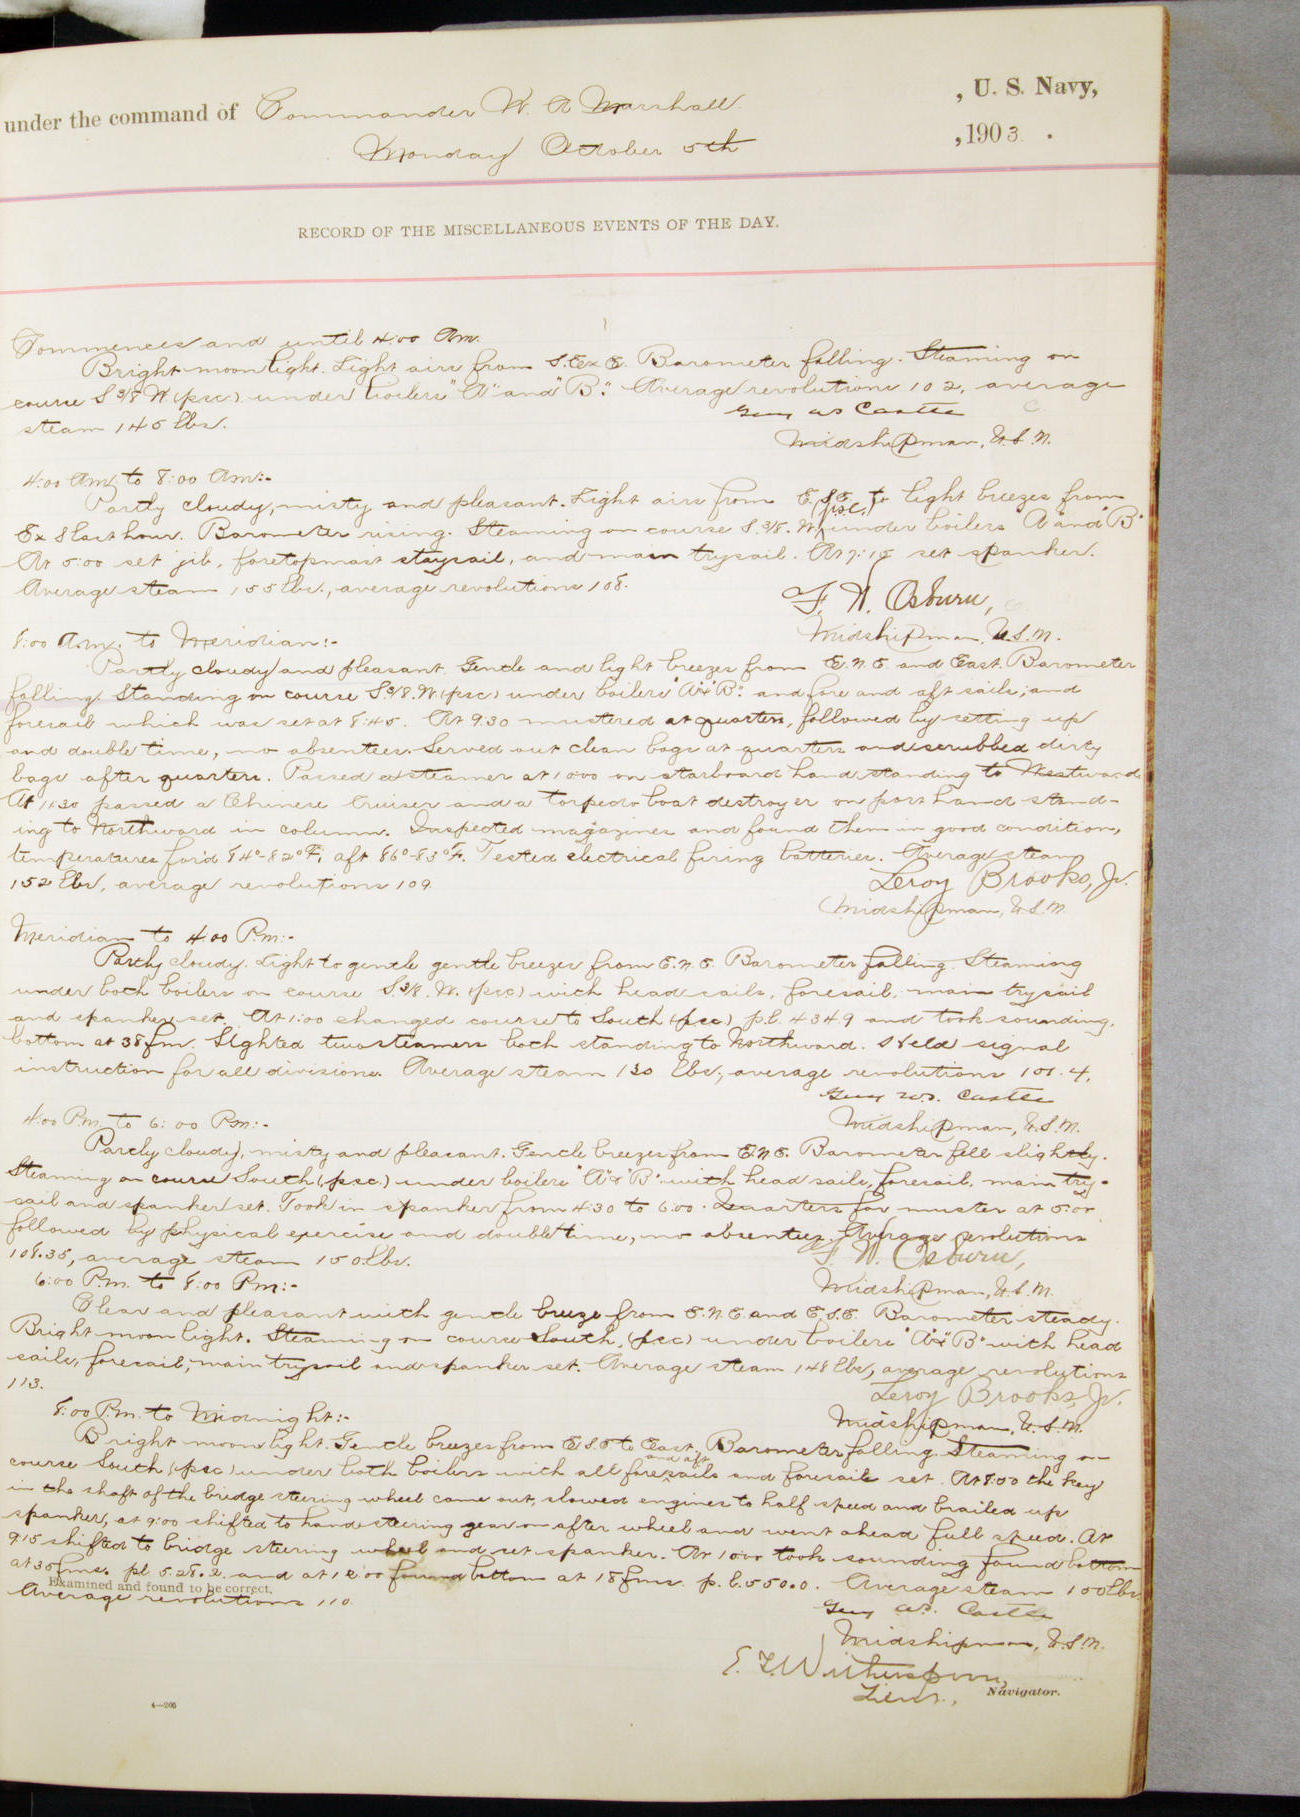 under the command of Commander W. A. Marshall , U. S. Navy,
Monday October 5th , 1903 .
RECORD OF THE MISCELLANEOUS EVENTS OF THE DAY.
Commences and until 4:00 Am.
Bright moonlight. Light airs from S.E x E. Barometer falling. Steaming on
course S 3/8 W (psc) under boilers "A" and "B". Average revolutions 102, average
steam 145 lbs.
Guy W S Castle
Midshipman, U.S.N.
4:00 Am, to 8:00 Am:-
Partly cloudy, misty and pleasant. Light airs from E.S.E. to light breezes from
E x S last hour. Barometer rising. Steaming on course S. 3/8. W. (psc.) under boilers "A" and "B"
At 5:00 set jib, foretopmast staysail, and main trysail. At 7:15 set spanker.
Average steam 155 lbs., average revolutions 108.
F. W. Osburn,
Midshipman, U.S.N.
8:00 A.m. to Meridian:-
Partly cloudy and pleasant. Gentle and light breezes from E.N.E and East. Barometer
falling. Standing on course S 3/8. W. (psc) under boilers "A" & "B". and fore and aft sails, and
foresail which was set at 8:45. At 9.30 mustered at quarters, followed by setting up
and double time, no absentees. Served out clean bags at quarters and scrubbed dirty
bags after quarters. Passed a steamer at 10:00 on starboard hand standing to Westward
At 11:30 passed a Chinese Cruiser and a torpedo boat destroyer on port hand stand-
ing to Northward in column. Inspected magazines and found them in good condition,
temperatures for'd 84°-82° F, aft 86°-83° F. Tested electrical firing batteries. Average steam
152 lbs, average revolutions 109.
Leroy Brooks, Jr.
Midshipman, U.S.N.
Meridian to 4:00 P.m:-
Partly cloudy. Light to gentle gentle breezes from E.N.E. Barometer falling. Steaming
under both boilers on course S. 3/8. W. (psc) with head sails, foresail, main trysail
and spanker set. At 1:00 changed course to South (psc) p.l. 434.9 and took sounding,
bottom at 38 fm. Sighted two steamers both standing to Northward. Held signal
instruction for all divisions. Average steam 130 lbs; average revolutions 101.4,
Guy W.S. Castle
Midshipman, U.S.N.
4:00 P.m. to 6:00 P.m:-
Partly cloudy, misty and pleasant. Gentle breezes from E.N.E. Barometer fell slightly.
Steaming on course South (psc.) under boilers "A" & "B" with head sails, foresail, main try-
sail and spanker set. Took in spanker from 4:30 to 6:00. Quarters for muster at 5:05
followed by physical exercise and double time, no absentees. Average revolutions
108.35, average steam 150 lbs.
F. W. Osburn,
Midshipman, U.S.N.
6:00 P.m. to 8:00 P.m:-
Clear and pleasant with gentle breeze from E.N.E. and E.S.E. Barometer steady.
Bright moonlight. Steaming on course South, (psc) under boilers "A" & "B" with head
sails, foresail, main trysail and spanker set. Average steam 148 lbs, average revolutions
113.
Leroy Brooks, Jr.
Midshipman, U.S.N.
8:00 P.m. to Midnight:-
Bright moonlight. Gentle breezes from E.S.E to East. Barometer falling. Steaming on
course South (psc) under both boilers with all fore and aft sails and foresail set. At 8:00 the key
in the shaft of the bridge steering wheel came out, slowed engines to half speed and brailed up
spanker, at 9:00 shifted to hand steering gear on after wheel and went ahead full speed. At
9:15 shifted to bridge steering wheel and set spanker. At 10:00 took sounding found bottom
at 35 fms. pl 528.2. and at 12:00 found bottom at 18 fms. p.l. 550.0. Average steam 150 lbs.
Examined and found to be correct.
Average revolutions 110.
Guy W.S. Castle
Midshipman, U.S.N.
E. T. Witherspoon,
Lieut., Navigator.
4—205